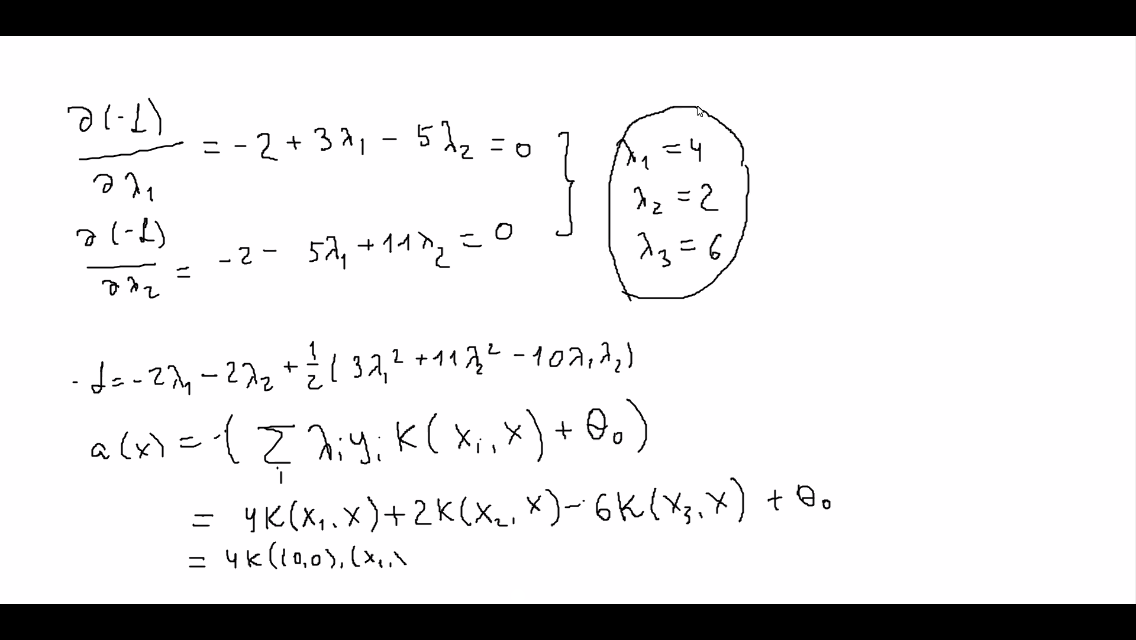 ∂(-L)/∂λ₁ = -2 + 3λ₁ - 5λ₂ = 0
∂(-L)/∂λ₂ = -2 - 5λ₁ + 11λ₂ = 0
λ₁ = 4
λ₂ = 2
λ₃ = 6
-L = -2λ₁ - 2λ₂ + 1/2 (3λ₁² + 11λ₂² - 10λ₁λ₂)
a(x) = (∑ᵢ λᵢyᵢ K(xᵢ, x) + θ₀)
= 4K(x₁, x) + 2K(x₂, x) - 6K(x₃, x) + θ₀
= 4K((0,0), (x₁,